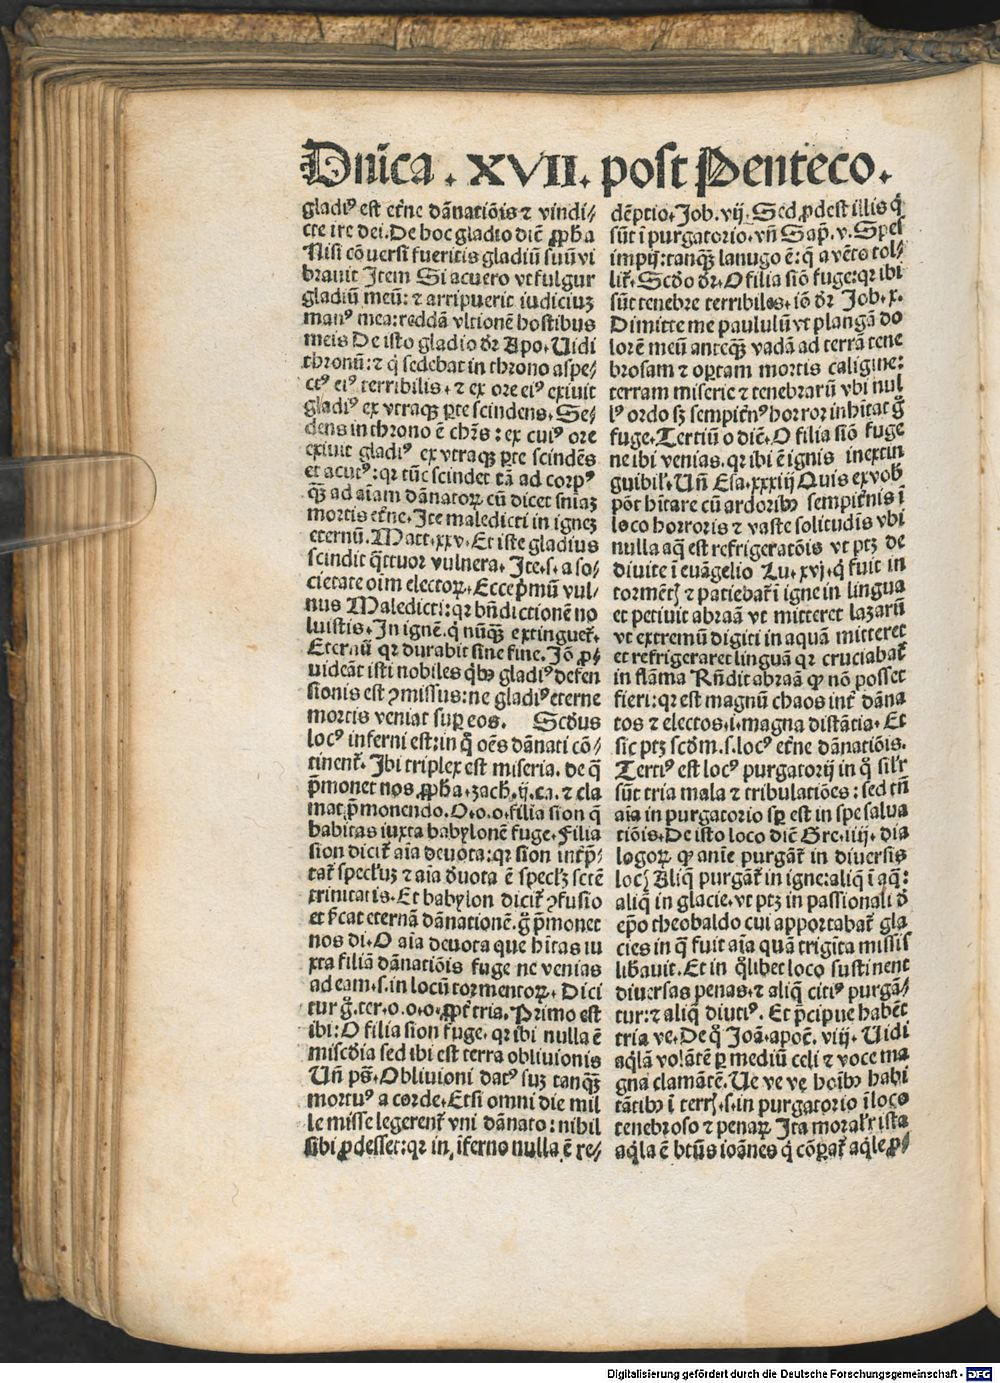 Dnĩca . XVII . post Penteco.
gladiꝰ est etẽne dãnatiõis ⁊ vindi⸗
cte ire dei. De hoc gladio diẽ ꝓph̃a
Nisi cõuersi fueritis gladiũ suũ vi
brauit Item Si acuero vt fulgur
gladiũ meũ: ⁊ arripuerit iudiciuꝫ
manꝰ mea: reddã vltionẽ hostibus
meis De isto gladio dr̃ Apo. Uidi
thronũ: ⁊ q̃ sedebat in throno aspe⸗
ctꝰ eiꝰ terribilis. ⁊ ex ore eiꝰ exiuit
gladiꝰ ex vtraqꝫ ꝑte scindens. Se⸗
dens in throno ẽ chr̃s: ex cuiꝰ ore
exiuit gladiꝰ ex vtraqꝫ ꝑte scindẽs
et acutꝰ: qꝛ tũc scindet tã ad corpꝰ
qꝫ̃ ad aĩam dãnatoꝝ cũ dicet sniãꝫ
mortis etẽne. Ite maledicti in igneꝫ
eternũ. Matt. xxv. Et iste gladius
scindit q̃ttuor vulnera. Ite .s. a so⸗
cietate oĩm electoꝝ. Ecce pͥmũ vul⸗
nus Maledicti: qꝛ bñdictionẽ no
luistis. In ignẽ. q̃ nũqꝫ̃ extinguet̃.
Eternũ qꝛ durabit sine fine. Iõ ꝓ⸗
uideãt isti nobiles qͥbꝰ gladiꝰ defen
sionis est ꝯmissus: ne gladiꝰ eterne
mortis veniat suꝑ eos. Scd̃us
locꝰ inferni est: in q̊ oẽs dãnati cõ⸗
tinent̃. Ibi triplex est miseria. de q̃
p̃monet nos ꝓph̃a. zach. ij. ca. ⁊ cla
mat p̃monendo. O.o.o. filia sion q̃
habitas iuxta babylonẽ fuge. Filia
sion dicit̃ aĩa deuota: qꝛ sion int̃p̃⸗
tat̃ specl̃uꝫ ⁊ aĩa d̃uota ẽ specl̃ꝫ sctẽ
trinitatis. Et babylon dicit̃ ꝯfusio
et st̃cat eternã dãnationẽ. g̊ p̃monet
nos di. O aĩa deuota que hĩtas iu
xta filiã dãnatiõis fuge ne venias
ad eam. s. in locũ tormentoꝝ. Dici
tur g̊. ter. o.o.o. ꝓpt̃ tria. Primo est
ibi: O filia sion fuge. qꝛ ibi nulla ẽ
misc̃dia sed ibi est terra obliuionis
Uñ ps̃. Obliuioni datꝰ suꝫ tanqꝫ̃
mortuꝰ a corde. Etsi omni die mil
le misse legerent̃ vni dãnato: nihil
sibi ꝓdesset: qꝛ in ĩferno nulla ẽ re⸗
dẽptio. Job. vij. Sed ꝓdest illis q̃
sũt ĩ purgatorio. vñ Sap̃. v. Spes
impij: tanqꝫ̃ lanugo ẽ: q̃ a vẽto tol⸗
lit̃. Scd̃o dr̃. O filia siõ fuge: qꝛ ibi
sũt tenebre terribiles. iõ dr̃ Job. x.
Dimitte me paululũ vt plangã do
lorẽ meũ anteqꝫ̃ vadã ad terrã tene
brosam ⁊ oꝑtam mortis caligine:
terram miserie ⁊ tenebrarũ vbi nul
lꝰ ordo sꝫ sempit̃nꝰ horror inhĩtat g̊
fuge. Tertiũ o diẽ. O filia siõ fuge
ne ibi venias. qꝛ ibi ẽ ignis inextin
guibil̃. Uñ Esa. xxxiij Quis ex vob̃
põt hĩtare cũ ardoribꝰ sempit̃nis ĩ
loco horroris ⁊ vaste solitudĩs vbi
nulla aq̃ est refrigeratõis vt ptꝫ de
diuite ĩ euãgelio Lu. xvj. q̃ fuit in
tormẽtꝭ ⁊ patiebat̃ ĩ igne in lingua
et petiuit abraã vt mitteret lazarũ
vt extremũ digiti in aquã mitteret
et refrigeraret linguã qꝛ cruciabat̃
in flãma Rñdit abraã ꝙ nõ posset
fieri: qꝛ est magnũ chaos int̃ dãna
tos ⁊ electos. i. magna distãtia. Et
sic ptꝫ scd̃m. s. locꝰ etẽne dãnatiõis.
Tertiꝰ est locꝰ purgatorij in q̊ sil̃r
sũt tria mala ⁊ tribulatiões: sed tñ
aĩa in purgatorio sꝑ est in spe salua
tiõis. De isto loco diẽ Gre. iiij. dia
logoꝝ ꝙ anĩe purgãt̃ in diuersis
locꝭ Aliq̃ purgãt̃ in igne: aliq̃ ĩ aq̃:
aliq̃ in glacie. vt ptꝫ in passionali d̃
ep̃o theobaldo cui apportabat̃ gla
cies in q̃ fuit aĩa quã trigĩta missis
lib̃auit. Et in q̊libet loco sustinent
diuersas penas. ⁊ aliq̃ citiꝰ purgã⸗
tur: ⁊ aliq̃ diutiꝰ. Et p̃cipue habẽt
tria ve. De q̊ Joã. apoc̃. viij. Uidi
aq̃lã volãtẽ ꝑ mediũ celi ⁊ voce ma
gna clamãtẽ. Ue ve ve hoĩbꝰ habi
tãtibꝰ ĩ terrꝭ. s. in purgatorio ĩ loco
tenebroso ⁊ penaꝝ Ita moral̃r ista
aq̃la ẽ bt̃us ioãnes q̃ cõꝑat̃ aq̃le ꝓ⸗
Digitalisierung gefördert durch die Deutsche Forschungsgemeinschaft - DFG